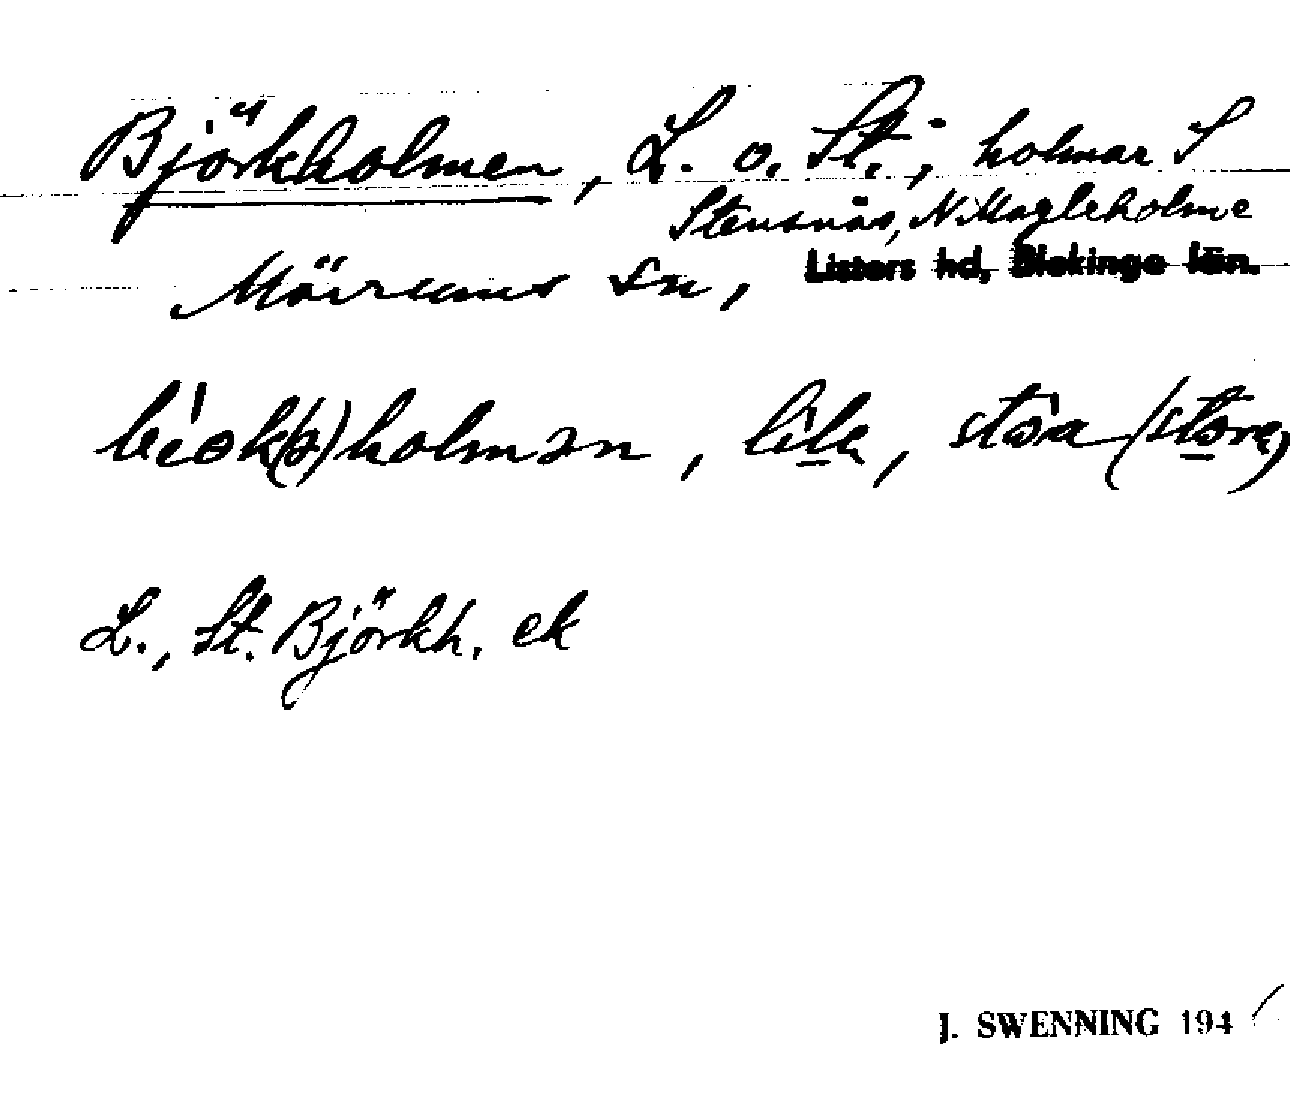 Björkholmen, L. o. St.; holmar S
Stensnäs, N Magleholme
Mörrums sn, Listers hd, Blekinge län.
holmən, lila, stora (store)
L., St. Björkh. ek
J. SWENNING 194